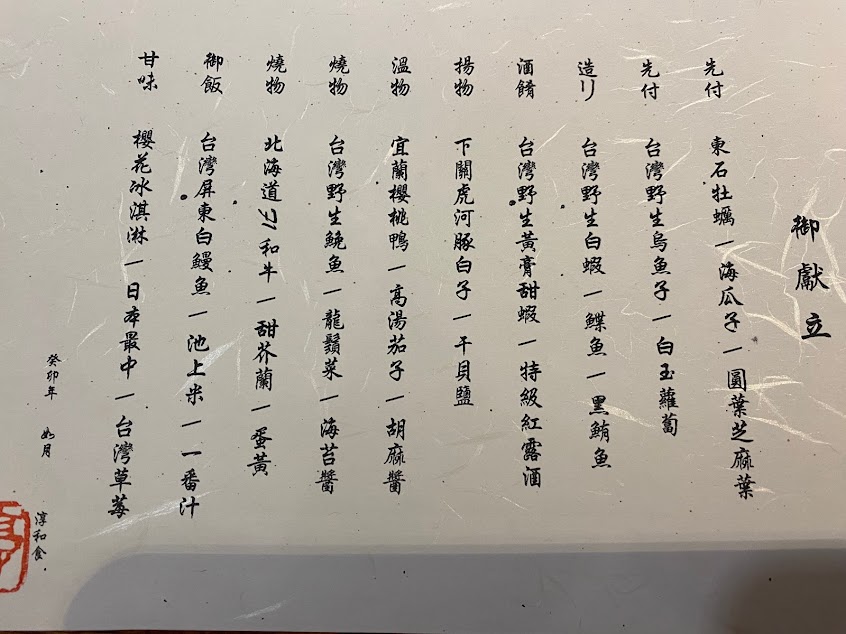 御獻立
先付 東石牡蠣｜海瓜子｜圓葉芝麻葉
先付 台灣野生烏魚子｜白玉蘿蔔
造り 台灣野生白蝦｜鰈魚｜黑鮪魚
酒餚 台灣野生黃膏甜蝦｜特級紅露酒
揚物 下關虎河豚白子｜干貝鹽
溫物 宜蘭櫻桃鴨｜高湯茄子｜胡麻醬
燒物 台灣野生鮸魚｜龍鬚菜｜海苔醬
燒物 北海道F1和牛｜甜芥蘭｜蛋黃
御飯 台灣屏東白鰻魚｜池上米｜一番汁
甘味 櫻花冰淇淋｜日本最中｜台灣草莓
癸卯年 如月
淳和食.